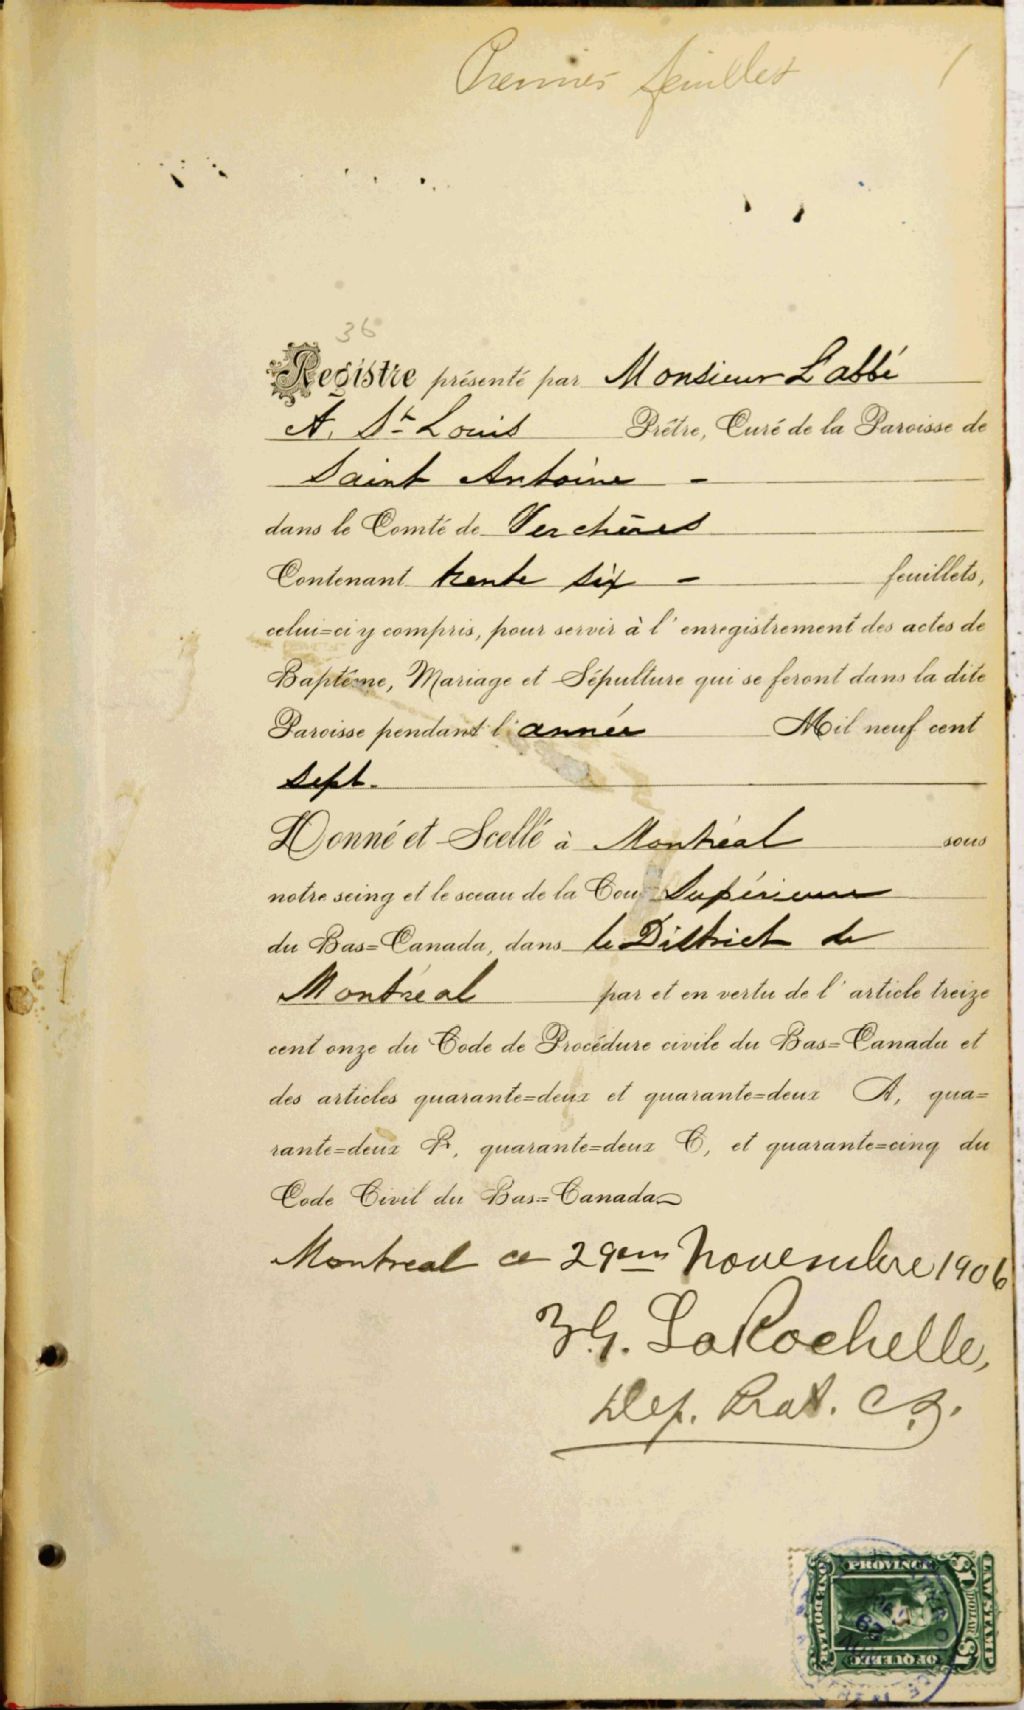 Premier feuillet 1
36
Registre présenté par Monsieur L'abbé
A. St Louis Prêtre, Curé de la Paroisse de
Saint Antoine -
dans le Comté de Verchères
Contenant trente six - feuillets,
celui=ci y compris, pour servir à l'enregistrement des actes de
Baptême, Mariage et Sépulture qui se feront dans la dite
Paroisse pendant l'année Mil neuf cent
sept.
Donné et Scellé à Montréal sous
notre seing et le sceau de la Cour Supérieure
du Bas=Canada, dans le District de
Montréal par et en vertu de l'article treize
cent onze du Code de Procédure civile du Bas=Canada et
des articles quarante=deux et quarante=deux A, qua=
rante=deux B, quarante=deux C, et quarante=cinq du
Code Civil du Bas=Canada
Montreal ce 29eme Novembre 1906
LaRochelle,
Dep. Prot. C.S.
PROVINCE
QUEBEC
LAW STAMP
$1 DOLLAR $1